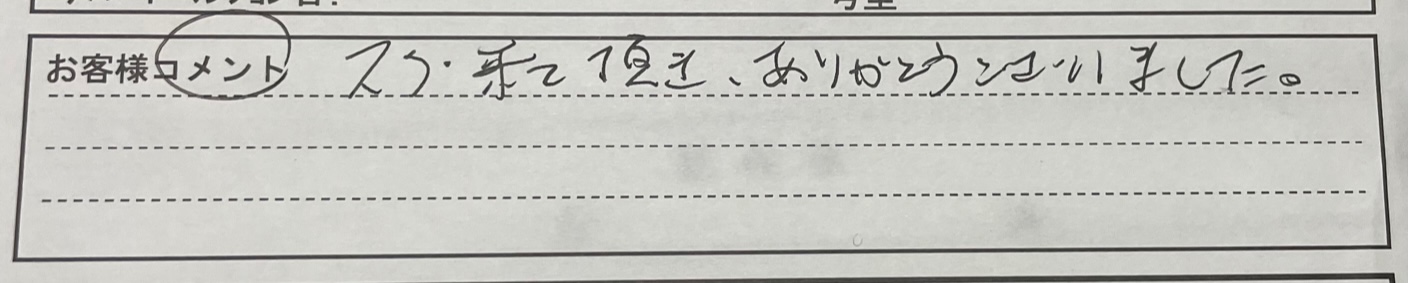 お客様コメント スグ来て頂き、ありがとうございました。